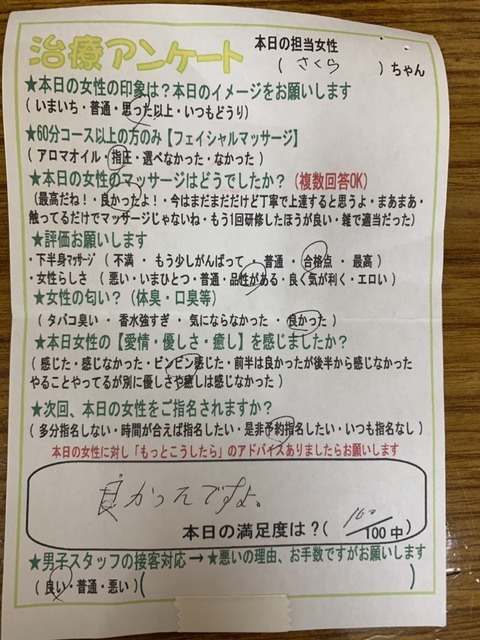 治療アンケート
本日の担当女性
( さくら )ちゃん
★本日の女性の印象は?本日のイメージをお願いします
(いまいち・普通・思った以上・いつもどうり)
★60分コース以上の方のみ【フェイシャルマッサージ】
(アロマオイル・指圧・選べなかった・なかった)
★本日の女性のマッサージはどうでしたか?(複数回答OK)
(最高だね!・良かったよ!・今はまだまだだけど丁寧で上達すると思うよ・まあまあ・
触ってるだけでマッサージじゃないね・もう1回研修したほうが良い・雑で適当だった)
★評価お願いします
・下半身マッサージ (不満・もう少しがんばって・普通・合格点・最高)
・女性らしさ (悪い・いまひとつ・普通・品性がある・良く気が利く・エロい)
★女性の匂い?(体臭・口臭等)
(タバコ臭い・香水強すぎ・気にならなかった・良かった)
★本日女性の【愛情・優しさ・癒し】を感じましたか?
(感じた・感じなかった・ビンビン感じた・前半は良かったが後半から感じなかった
やることやってるが別に優しさや癒しは感じなかった)
★次回、本日の女性をご指名されますか?
(多分指名しない・時間が合えば指名したい・是非予約指名したい・いつも指名なし)
本日の女性に対し「もっとこうしたら」のアドバイスありましたらお願いします
良かったですよ。
本日の満足度は?( 100/100中)
★男子スタッフの接客対応→★悪いの理由、お手数ですがお願いします
(良い・普通・悪い)( )